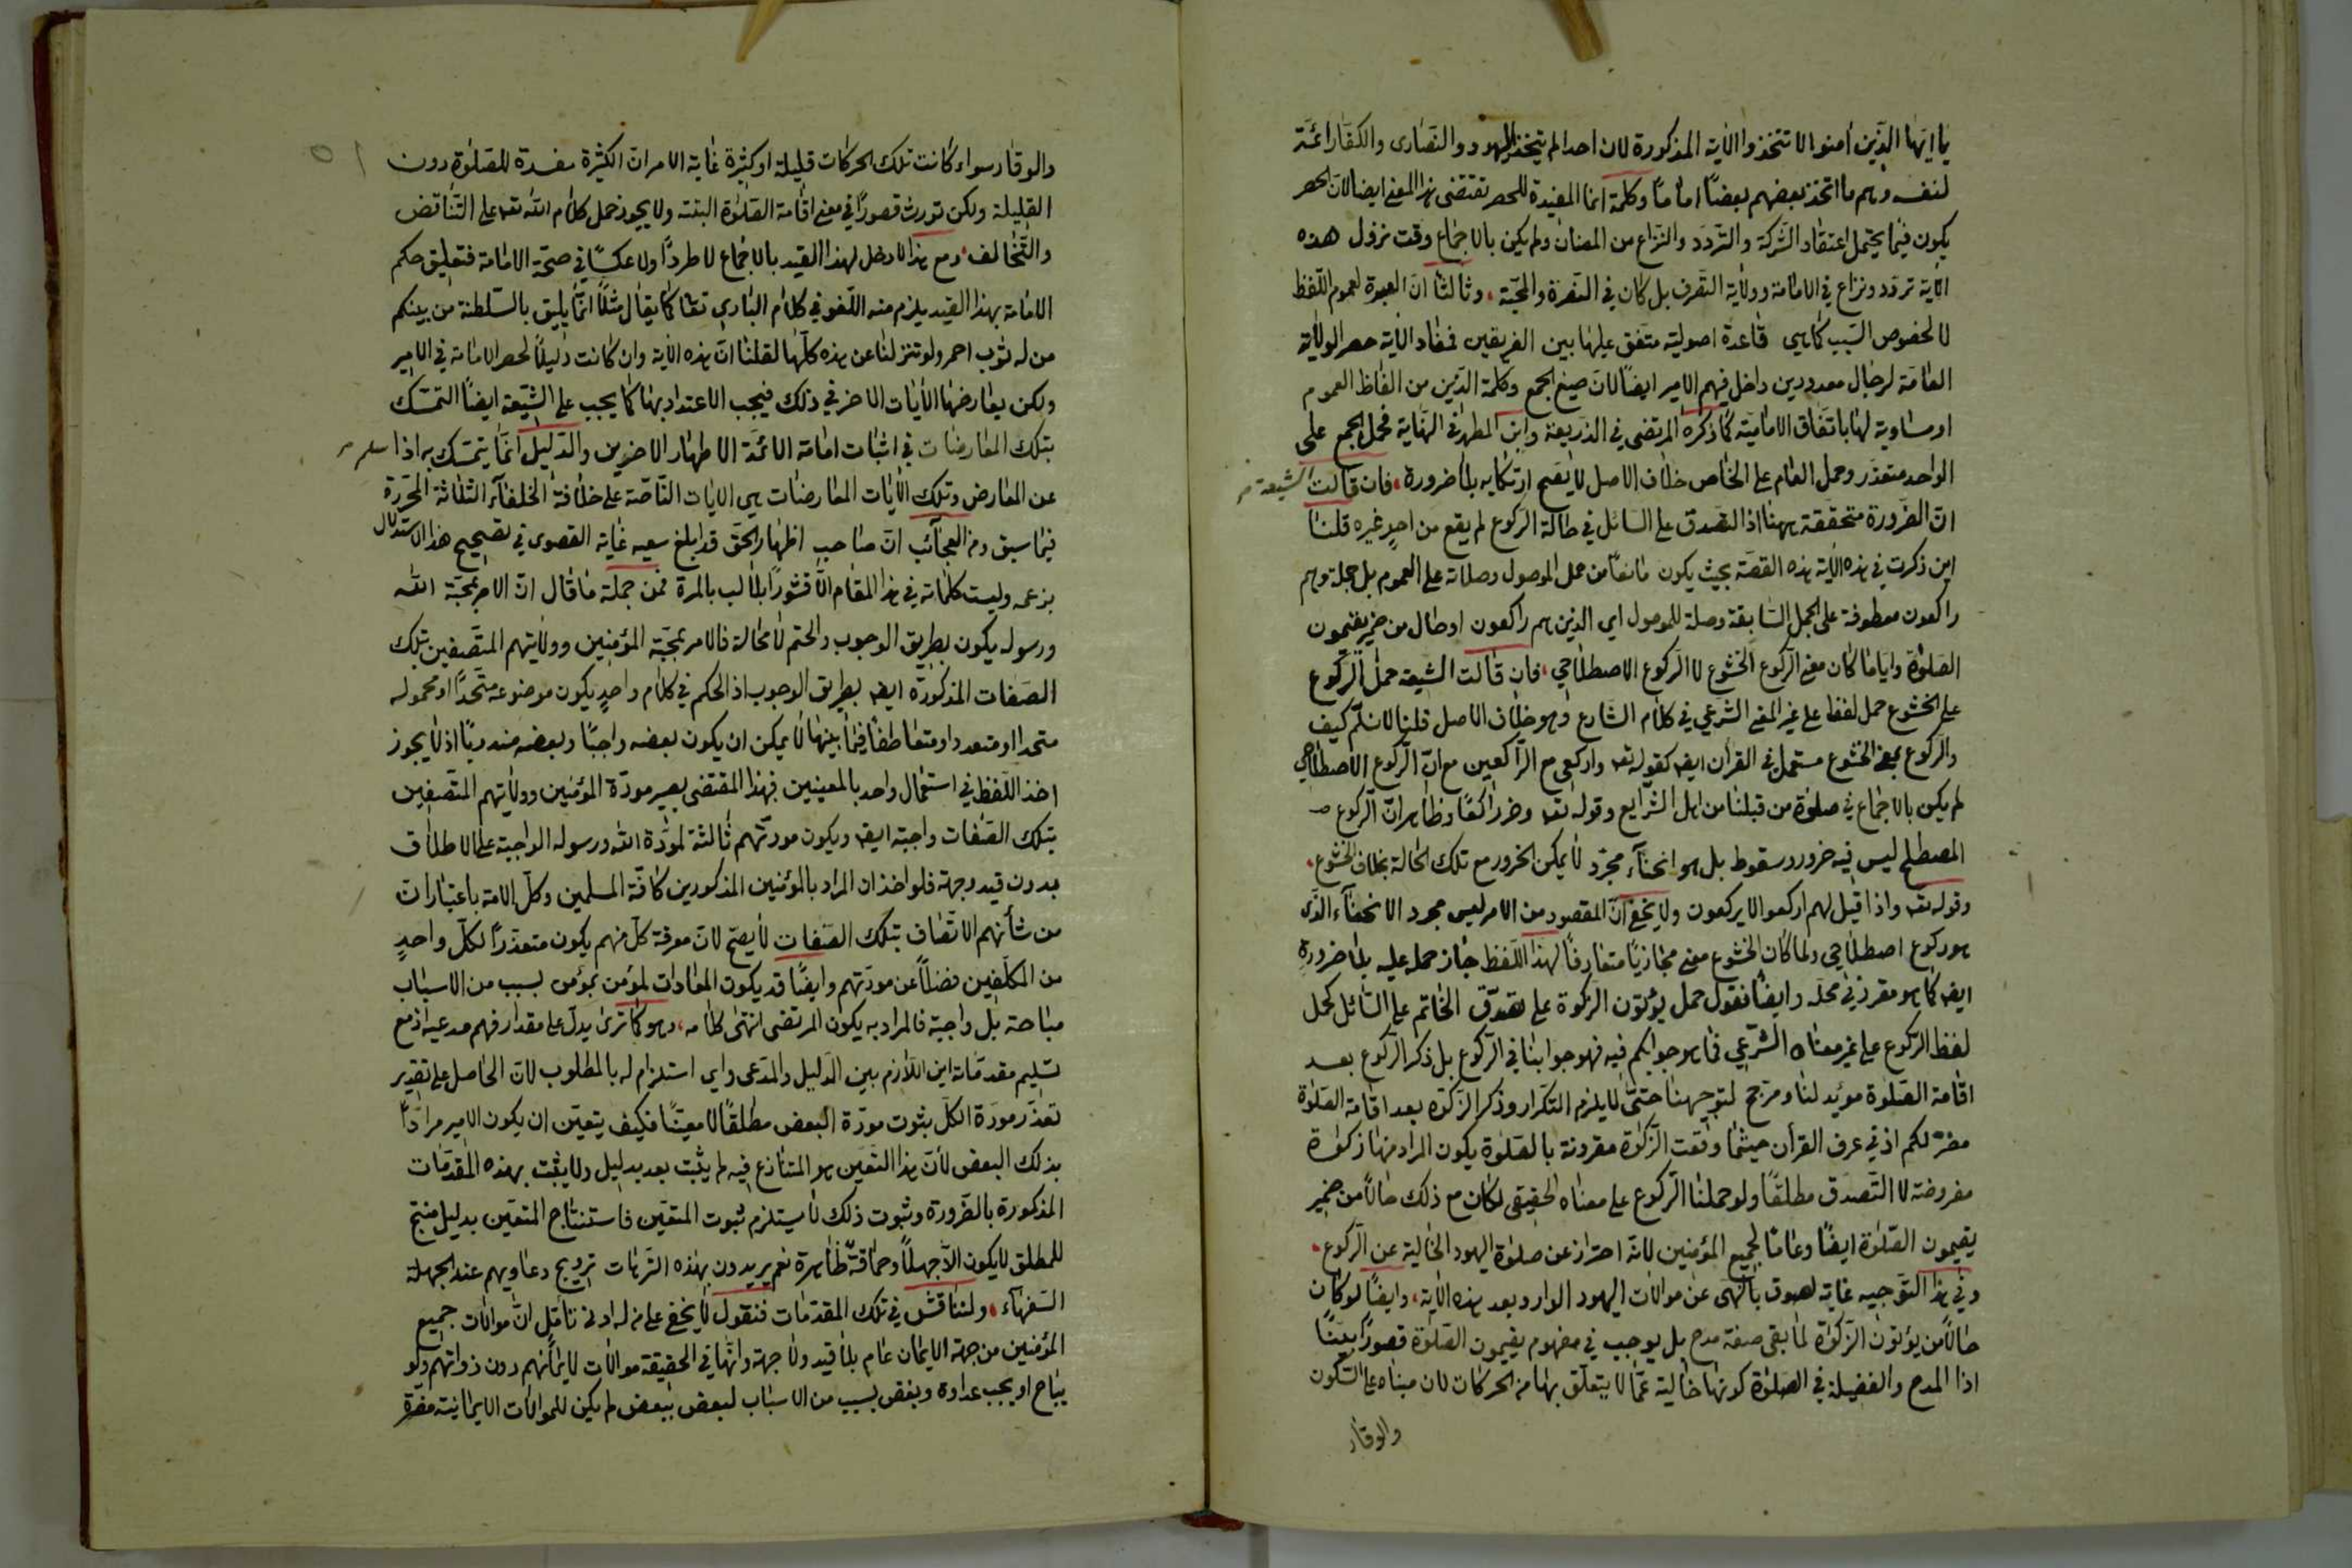 يا ايها الذين أمنوا لا تتخذوا الاية المذكورة لان احدا لم يتخذ اليهود والنصارى والكفار ائمة
لنفسه وهم ما اتخذ بعضهم بعضاً اماماً وكلمة انما المفيدة للحصر تقتضى هذا المعنى ايضا لان الحصر
يكون فيما يحتمل اعتقاد الشركة والتردد والنزاع من المظان ولم يكن بالاجماع وقت نزول هذه
الآية تردد ونزاع في الامامة وولاية التصرف بل كان في النصرة والمحبة، وثالثا ان العبرة لعموم اللفظ
لا لخصوص السبب كما هي قاعدة اصولية متفق عليها بين الفريقين فمفاد الآية حصر الولاية
العامة لرجال معدودين داخل فيهم الامير ايضاً لان صيغ الجمع وكلمة الذين من الفاظ العموم
او مساوية لها باتفاق الامامية كما ذكره المرتضى في الذريعة وابن المطهر في النهاية فحمل الجمع على
الواحد متعذر وحمل العام على الخاص خلاف الاصل لا يصح ارتكابه بلا ضرورة، فان قالت الشيعة
ان الضرورة متحققة ههنا اذ التصدق على السائل في حالة الركوع لم يقع من احدٍ غيره قلنا
اين ذكرت في هذه الآية هذه القصة بحيث يكون مانعاً من حمل الموصول وصلاته على العموم بل جملة وهم
راكعون معطوفة على الجمل السابقة وصلة للموصول اي الذين هم راكعون او حال من ضمير يقيمون
الصلوة وايا ما كان معنى الركوع الخشوع لا الركوع الاصطلاحي، فان قالت الشيعة حمل الركوع
على الخشوع حمل لفظ على غير المعنى الشرعي في كلام الشارع وهو خلاف الاصل قلنا لا نسلم كيف
والركوع بمعنى الخشوع مستعمل في القرأن ايضا كقوله تعه واركعي مع الراكعين مع ان الركوع الاصطلاحي
لم يكن بالاجماع في صلوة من قبلنا من اهل الشرايع وقوله تعه وخر راكعاً وظاهر ان الركوع
المصطلح ليس فيه خرور وسقوط بل هو انحناء مجرد لا يمكن الخرور مع تلك الحالة بخلاف الخشوع.
وقوله تعه واذا قيل لهم اركعوا لا يركعون ولا يخفى ان المقصود من الامر ليس مجرد الانحناء الذي
هو ركوع اصطلاحي ولما كان الخشوع معنى مجازياً متعارفاً لهذا اللفظ جاز حمله عليه بلا ضرورة
ايضا كما هو مقرر في محله وايضاً نقول حمل يؤتون الزكوة على تصدق الخاتم على السائل كحمل
لفظ الركوع على غير معناه الشرعي فما هو جوابكم فيه فهو جوابنا في الركوع بل ذكر الركوع بعد
اقامة الصلوة مؤيد لنا ومرجح لتوجيهنا حتى لا يلزم التكرار وذكر الزكوة بعد اقامة الصلوة
مضر لكم اذ في عرف القرآن حيثما وقعت الزكوة مقرونة بالصلوة يكون المراد منها زكوة
مفروضة لا التصدق مطلقاً ولو حملنا الركوع على معناه الحقيقي لكان مع ذلك حالاً من ضمير
يقيمون الصلوة ايضاً وعاماً لجميع المؤمنين لانه احتراز عن صلوة اليهود الخالية عن الركوع.
وفي هذا التوجيه غاية لصوق بالنهى عن موالات اليهود الوارد بعد هذه الآية، وايضاً لو كان
حالاً من يؤتون الزكوة لما بقى صفة مدح بل يوجب في مفهوم يقيمون الصلوة قصوراً بيناً
اذا المدح والفضيلة في الصلوة كونها خالية عما لا يتعلق بها من الحركات لان مبناه على السكون
والوقار
والوقار سواء كانت تلك الحركات قليلة او كثيرة غاية الامر ان الكثيرة مفسدة للصلوة دون
القليلة ولكن تورث قصوراً في معنى اقامة الصلوة البتة ولا يجوز حمل كلام الله تعه على التناقض
والتخالف، ومع هذا لا دخل لهذا القيد بالاجماع لا طرداً ولا عكساً في صحة الامامة فتعليق حكم
الامامة بهذا القيد يلزم منه اللغو في كلام الباري تعا كما يقال مثلاً انما يليق بالسلطنة من بينكم
من له ثوب احمر ولو تنزلنا عن هذه كلها لقلنا ان هذه الآية وان كانت دليلاً لحصر الامامة في الامير
ولكن يعارضها الآيات الاخر في ذلك فيجب الاعتداد بها كما يجب على الشيعة ايضاً التمسك
بتلك المعارضات في اثبات امامة الائمة الاطهار الاخرين والدليل انما يتمسك به اذا سلم
عن المعارض وتلك الآيات المعارضات هي الايات الناصة على خلافة الخلفاء الثلاثة المحررة
فيما سبق ومن العجائب ان صاحب اظهار الحق قد ابلغ سعيه غاية القصوى في تصحيح هذا الاستدلال
بزعمه وليست كلماته في هذا المقام الا قشوراً بلا لب بالمرة فمن جملة ما قال ان الامر بمحبة الله
ورسوله يكون بطريق الوجوب والحتم لا محالة فالامر بمحبة المؤمنين وولايتهم المتصفين بتلك
الصفات المذكورة ايضا بطريق الوجوب اذ الحكم في كلام واحدٍ يكون موضوعه متحداً او محموله
متحدا او متعددا ومتعاطفاً فيما بينها لا يمكن ان يكون بعضه واجباً وبعضه مندوباً اذ لا يجوز
اخذ اللفظ في استعمال واحد بالمعنيين فبهذا المقتضى يصير مودة المؤمنين وولايتهم المتصفين
بتلك الصفات واجبة ايضا ويكون مودتهم ثالثة لمودة الله ورسوله الواجبة على الاطلاق
بدون قيد وجهة فلو اخذ ان المراد بالمؤمنين المذكورين كافة المسلمين وكل الامة باعتبار ان
من شأنهم الاتصاف بتلك الصفات لا يصح لان معرفة كل منهم يكون متعذراً لكل واحدٍ
من المكلفين فضلاً عن مودتهم وايضاً قد يكون المعادات لمؤمن بمؤمن بسبب من الاسباب
مباحة بل واجبة فالمراد به يكون المرتضى انتهى كلامه، وهو كما ترى يدل على مقدار فهم مدعيه اذ مع
تسليم مقدماته اين اللازم بين الدليل والمدعى واي استلزام له بالمطلوب لان الحاصل على تقدير
تعذر مودة الكل بثوت مودة البعض مطلقاً لا معيناً فكيف يتعين ان يكون الامير مراداً
بذلك البعض لان هذا التعين هو المتنازع فيه لم يثبت بعد بدليل ولا يثبت بهذه المقدمات
المذكورة بالضرورة وثبوت ذلك لا يستلزم ثبوت المتعين فاستنتاج المتعين بدليل منتج
للمطلق لا يكون الا جهلاً وحماقةً ظاهرة نعم يريدون بهذه الترهات ترويج دعاويهم عند الجهلة
السفهاء، ولنناقش في تلك المقدمات فنقول لا يخفى على من له ادنى تأمل ان موالات جميع
المؤمنين من جهة الايمان عام بلا قيد ولا جهة وانها في الحقيقة موالات لايمانهم دون ذواتهم ولو
يباح او يجب عداوة وبغض بسبب من الاسباب لبعض ببعض لم يكن للموالات الايمانية مضرة